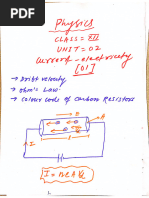 Physics
CLASS = XII
UNIT = 02
current-electricity
[01]
→ Drift velocity
→ ohm's Law
→ Colour code of carbon Resistors
A
I
I = neAVd